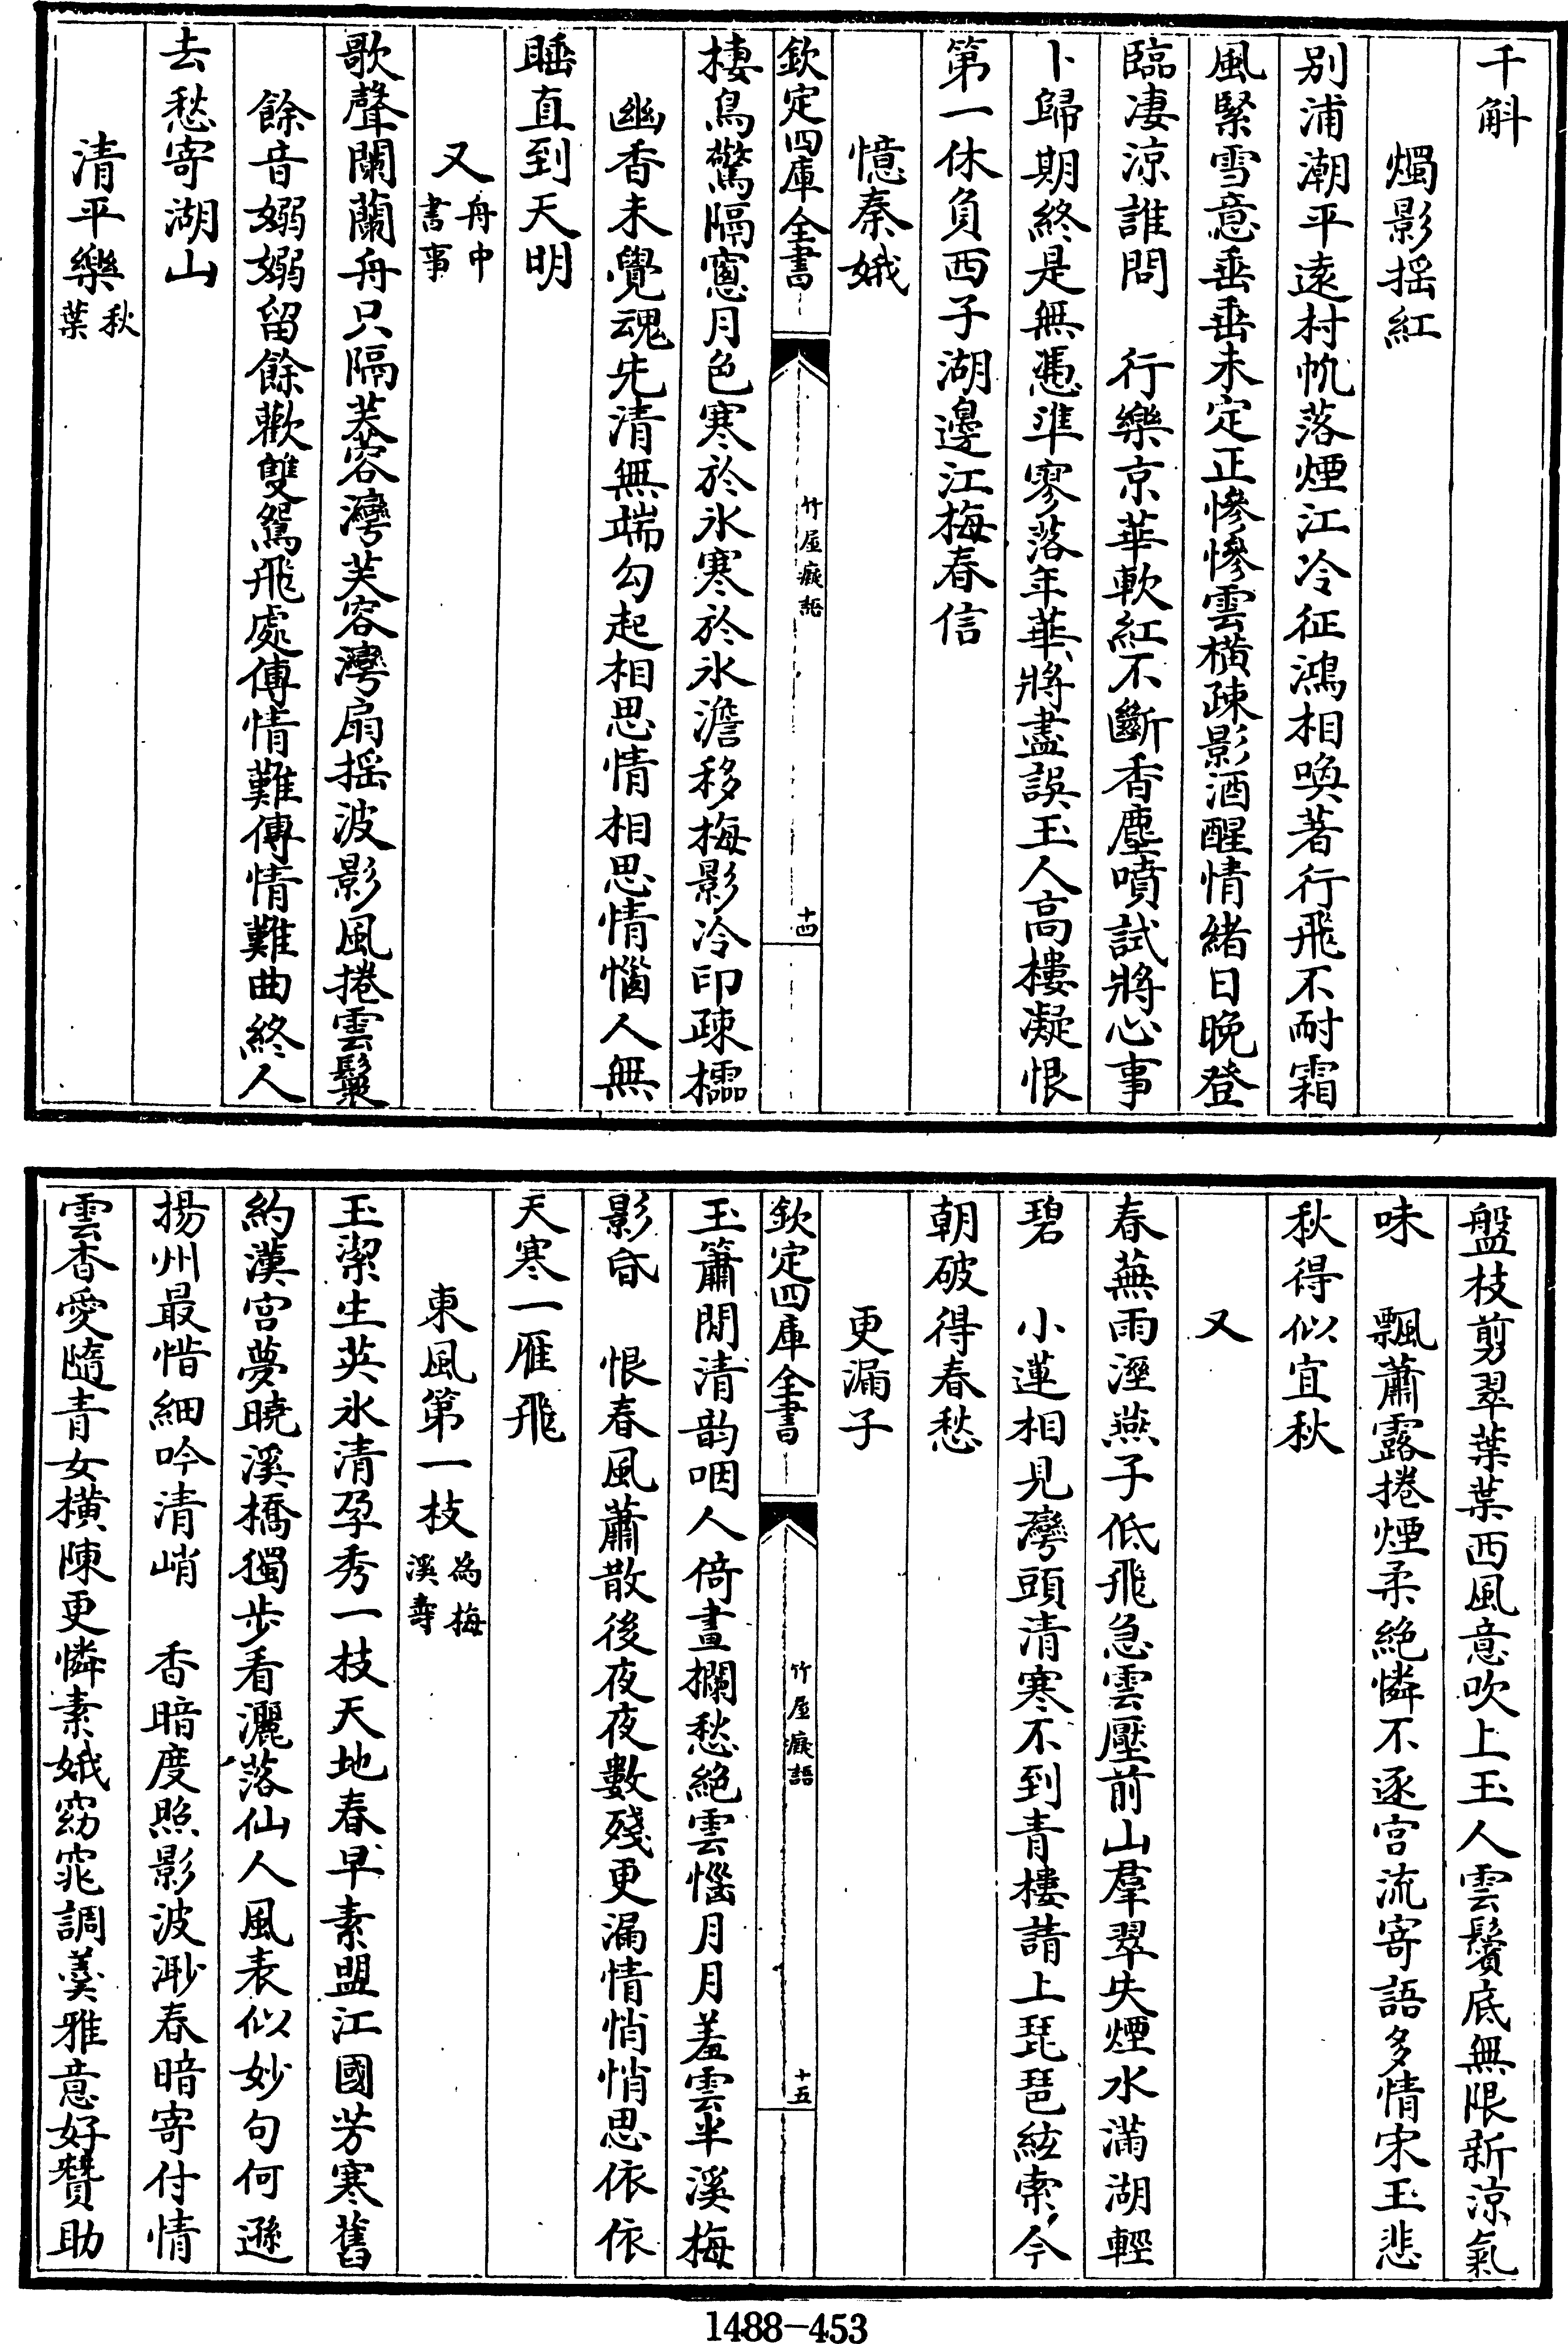 千斛
燭影揺紅
别浦潮平逺村帆落煙江冷征鴻相喚著行飛不耐霜
風緊雪意垂垂未定正慘慘雲橫疎影酒醒情緒日晚登
臨凄涼誰問　行樂京華軟紅不斷香塵噴試將心事
卜歸期終是無憑準寥落年華將盡誤玉人高樓凝恨
第一休負西子湖邊江梅春信
憶秦娥
欽定四庫全書
竹屋癡語
十四
棲鳥驚隔窻月色寒於氷寒於氷澹移梅影冷印疎櫺
幽香未覺魂先清無端勾起相思情相思情惱人無
睡直到天明
又舟中書事
歌聲闌蘭舟只隔芙蓉灣芙容灣扇揺波影風捲雲鬟
餘音嫋嫋留餘歡雙鴛飛處傳情難傳情難曲終人
去愁寄湖山
清平樂秋葉
盤枝剪翠葉葉西風意吹上玉人雲鬢底無限新涼氣
味　飄蕭露捲煙柔絶憐不逐宫流寄語多情宋玉悲
秋得似宜秋
又
春蕪雨溼燕子低飛急雲壓前山羣翠失煙水滿湖輕
碧　小蓮相見灣頭清寒不到青樓請上琵琶絃索今
朝破得春愁
更漏子
欽定四庫全書
竹屋癡語
十五
玉簫閒清韵咽人倚畫欄愁絶雲惱月月羞雲半溪梅
影昏　恨春風蕭散後夜夜數殘更漏情悄悄思依依
天寒一雁飛
東風第一枝為梅溪壽
玉潔生英氷清孕秀一枝天地春早素盟江國芳寒舊
約漢宫夢曉溪橋獨步看灑落仙人風表似妙句何遜
揚州最惜細吟清峭　香暗度照影波渺春暗寄付情
雲杳愛隨青女橫陳更憐素娥窈窕調羹雅意好贊助
1488-453